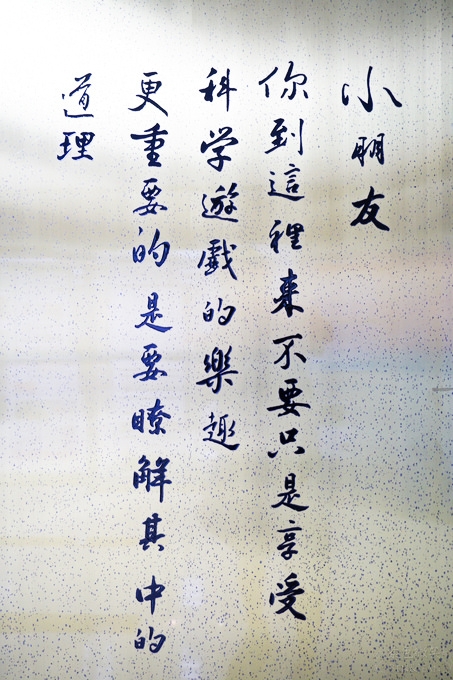 小朋友
你到這裡来不要只是享受
科学遊戲的樂趣
更重要的是要瞭解其中的
道理